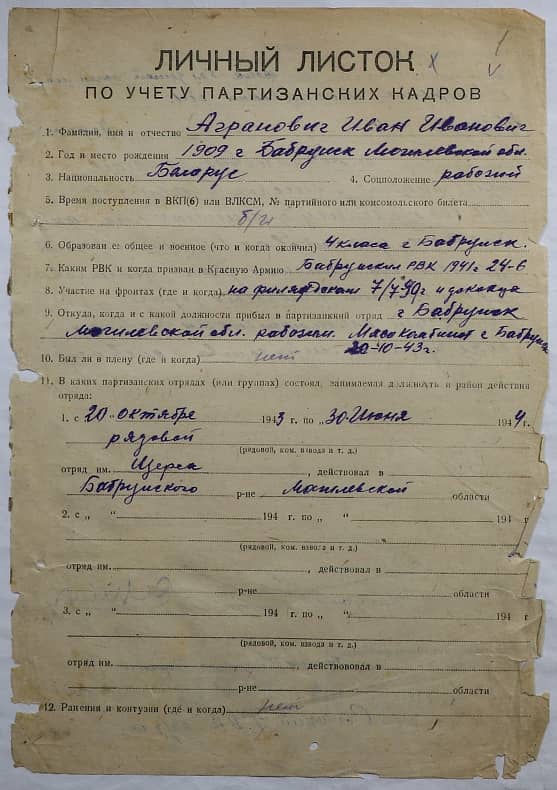 ЛИЧНЫЙ ЛИСТОК
ПО УЧЕТУ ПАРТИЗАНСКИХ КАДРОВ
1. Фамилия, имя и отчество Агранович Иван Иванович
2. Год и место рождения 1909 г Бабруйск Могилевской обл.
3. Национальность Беларус 4. Соцположение рабочий
5. Время поступления в ВКП(б) или ВЛКСМ, № партийного или комсомольского билета
б/п
6. Образование общее и военное (что и когда окончил) 4 класа г Бабруйск.
7. Каким РВК и когда призван в Красную Армию Бабруйским РВК 1941 г 24-6
8. Участие на фронтах (где и когда) на
9. Откуда, когда и с какой должности прибыл в партизанский отряд г Бабруйск
Могилевской обл. рабочим Мясокомбинат г Бабруйск
20-10-43 г.
10. Был ли в плену (где и когда) нет
11. В каких партизанских отрядах (или группах) состоял, занимаемая должность и район действия
отряда:
1. с 20 "октября 1943 г. по "30 Июня 1944 г.
рядовой
(рядовой, ком. взвода и т. д.)
отряд им. Щорса, действовал в
Бабруйского р-не Могилевской области
2. с „ “ 194 г. по „ “ 194
(рядовой, ком. взвода и т. д.)
отряд им. , действовал в
р-не области
3. с „ “ 194 г. по „ “ 194
(рядовой, ком. взвода и т. д.)
отряд им. , действовал в
р-не области
12. Ранения и контузии (где и когда) нет